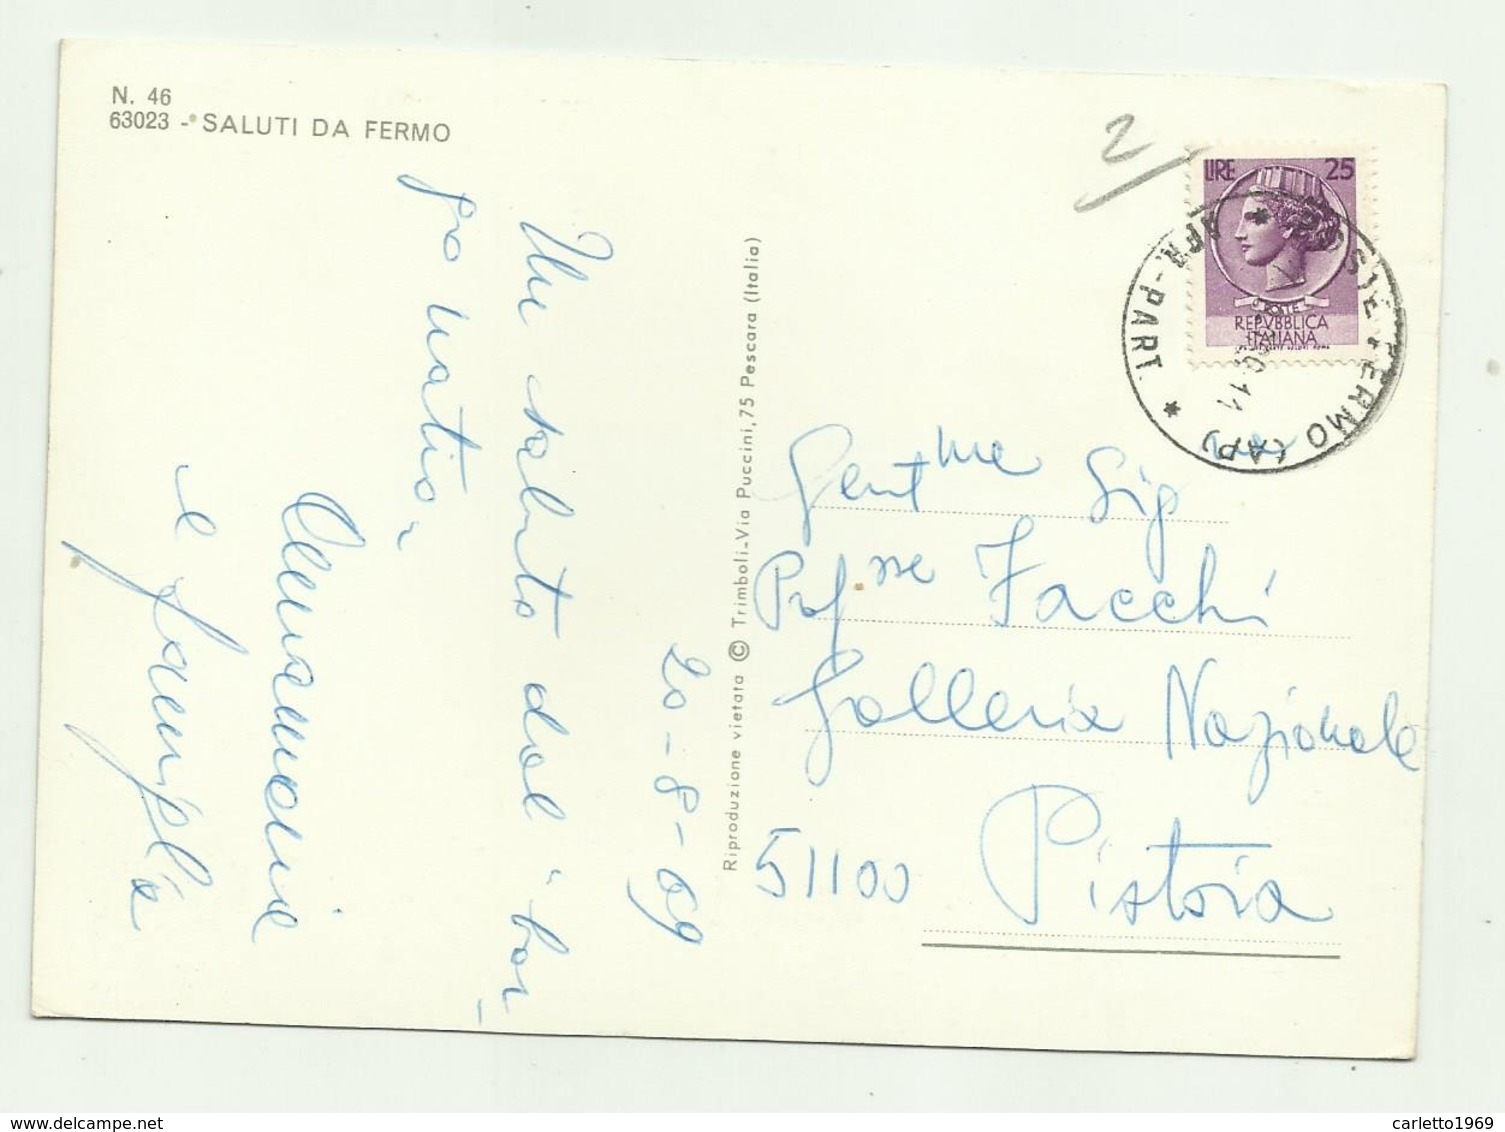 N. 46
63023 - SALUTI DA FERMO
2
LIRE 25
POSTE
REPVBBLICA
ITALIANA
POSTE FERMO (AP)
ARR.-PART.
Reproduzione vietata © Trimboli-Via Puccini,75 Pescara (Italia)
20-8-69
Un saluto dal "bor-
go natio"
Annamaria
e famiglia
Gent.me Sig.
Prof.sse Facchi
Galleria Nazionale
51100 Pistoia
delcampe.net
carletto1969